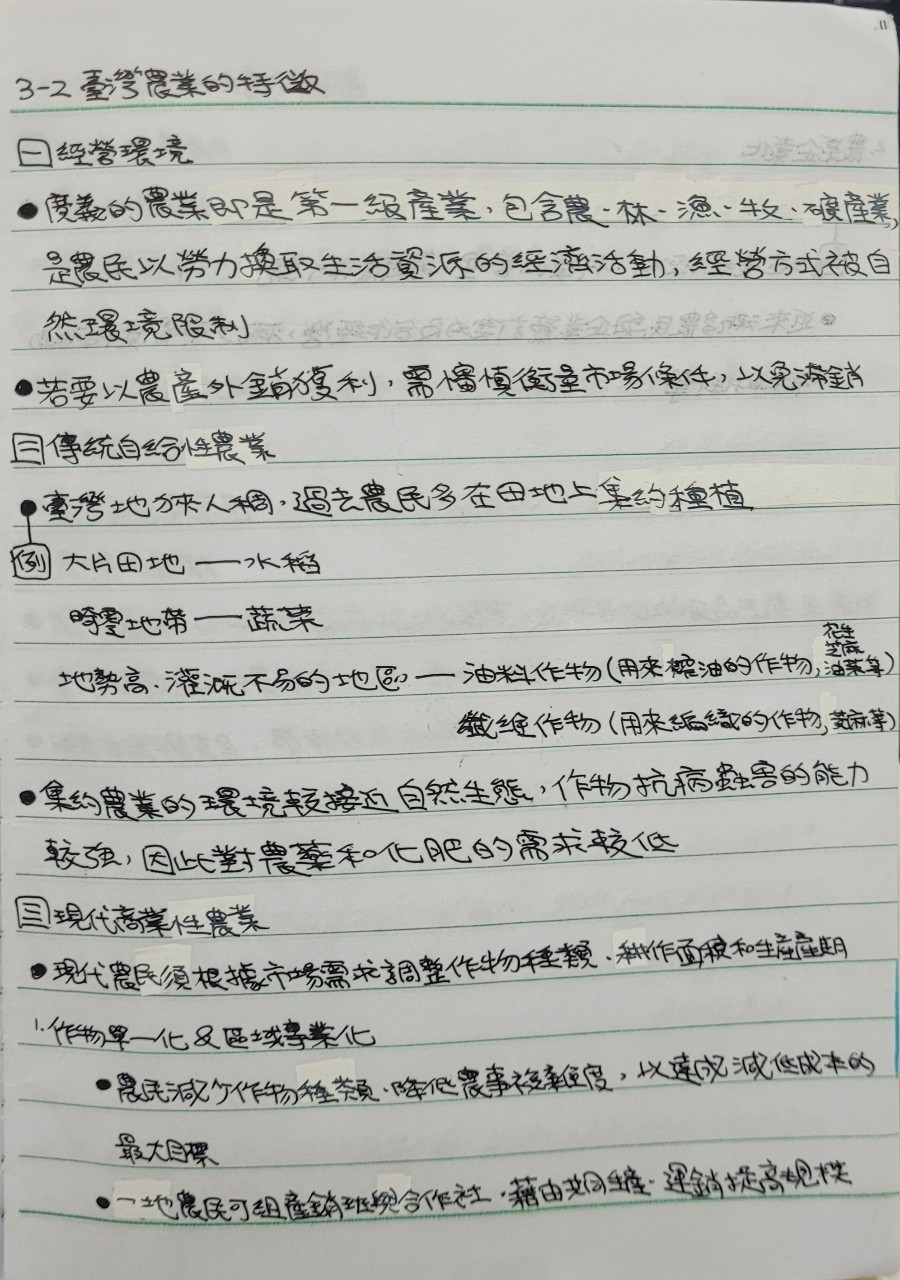 11
3-2 臺灣農業的特徵
一 經營環境
●廣義的農業即是第一級產業，包含農、林、漁、牧、礦產業，
是農民以勞力換取生活資源的經濟活動，經營方式被自
然環境限制
●若要以農產外銷獲利，需審慎衡量市場條件，以免滯銷
二 傳統自給性農業
●臺灣地狹人稠，過去農民多在田地上集約種植
例 大片田地 — 水稻
畸零地帶 — 蔬菜
地勢高、灌溉不易的地區 — 油料作物(用來榨油的作物，花生 芝麻 油菜等)
纖維作物(用來編織的作物，黃麻等)
●集約農業的環境較接近自然生態，作物抗病蟲害的能力
較強，因此對農藥和化肥的需求較低
三 現代商業性農業
●現代農民須根據市場需求調整作物種類、耕作面積和生產產期
1.作物單一化&區域專業化
●農民減少作物種類、降低農事複雜度，以達成減低成本的
最大目標
●一地農民可組產銷班與合作社，藉由共同生產、運銷提高規模